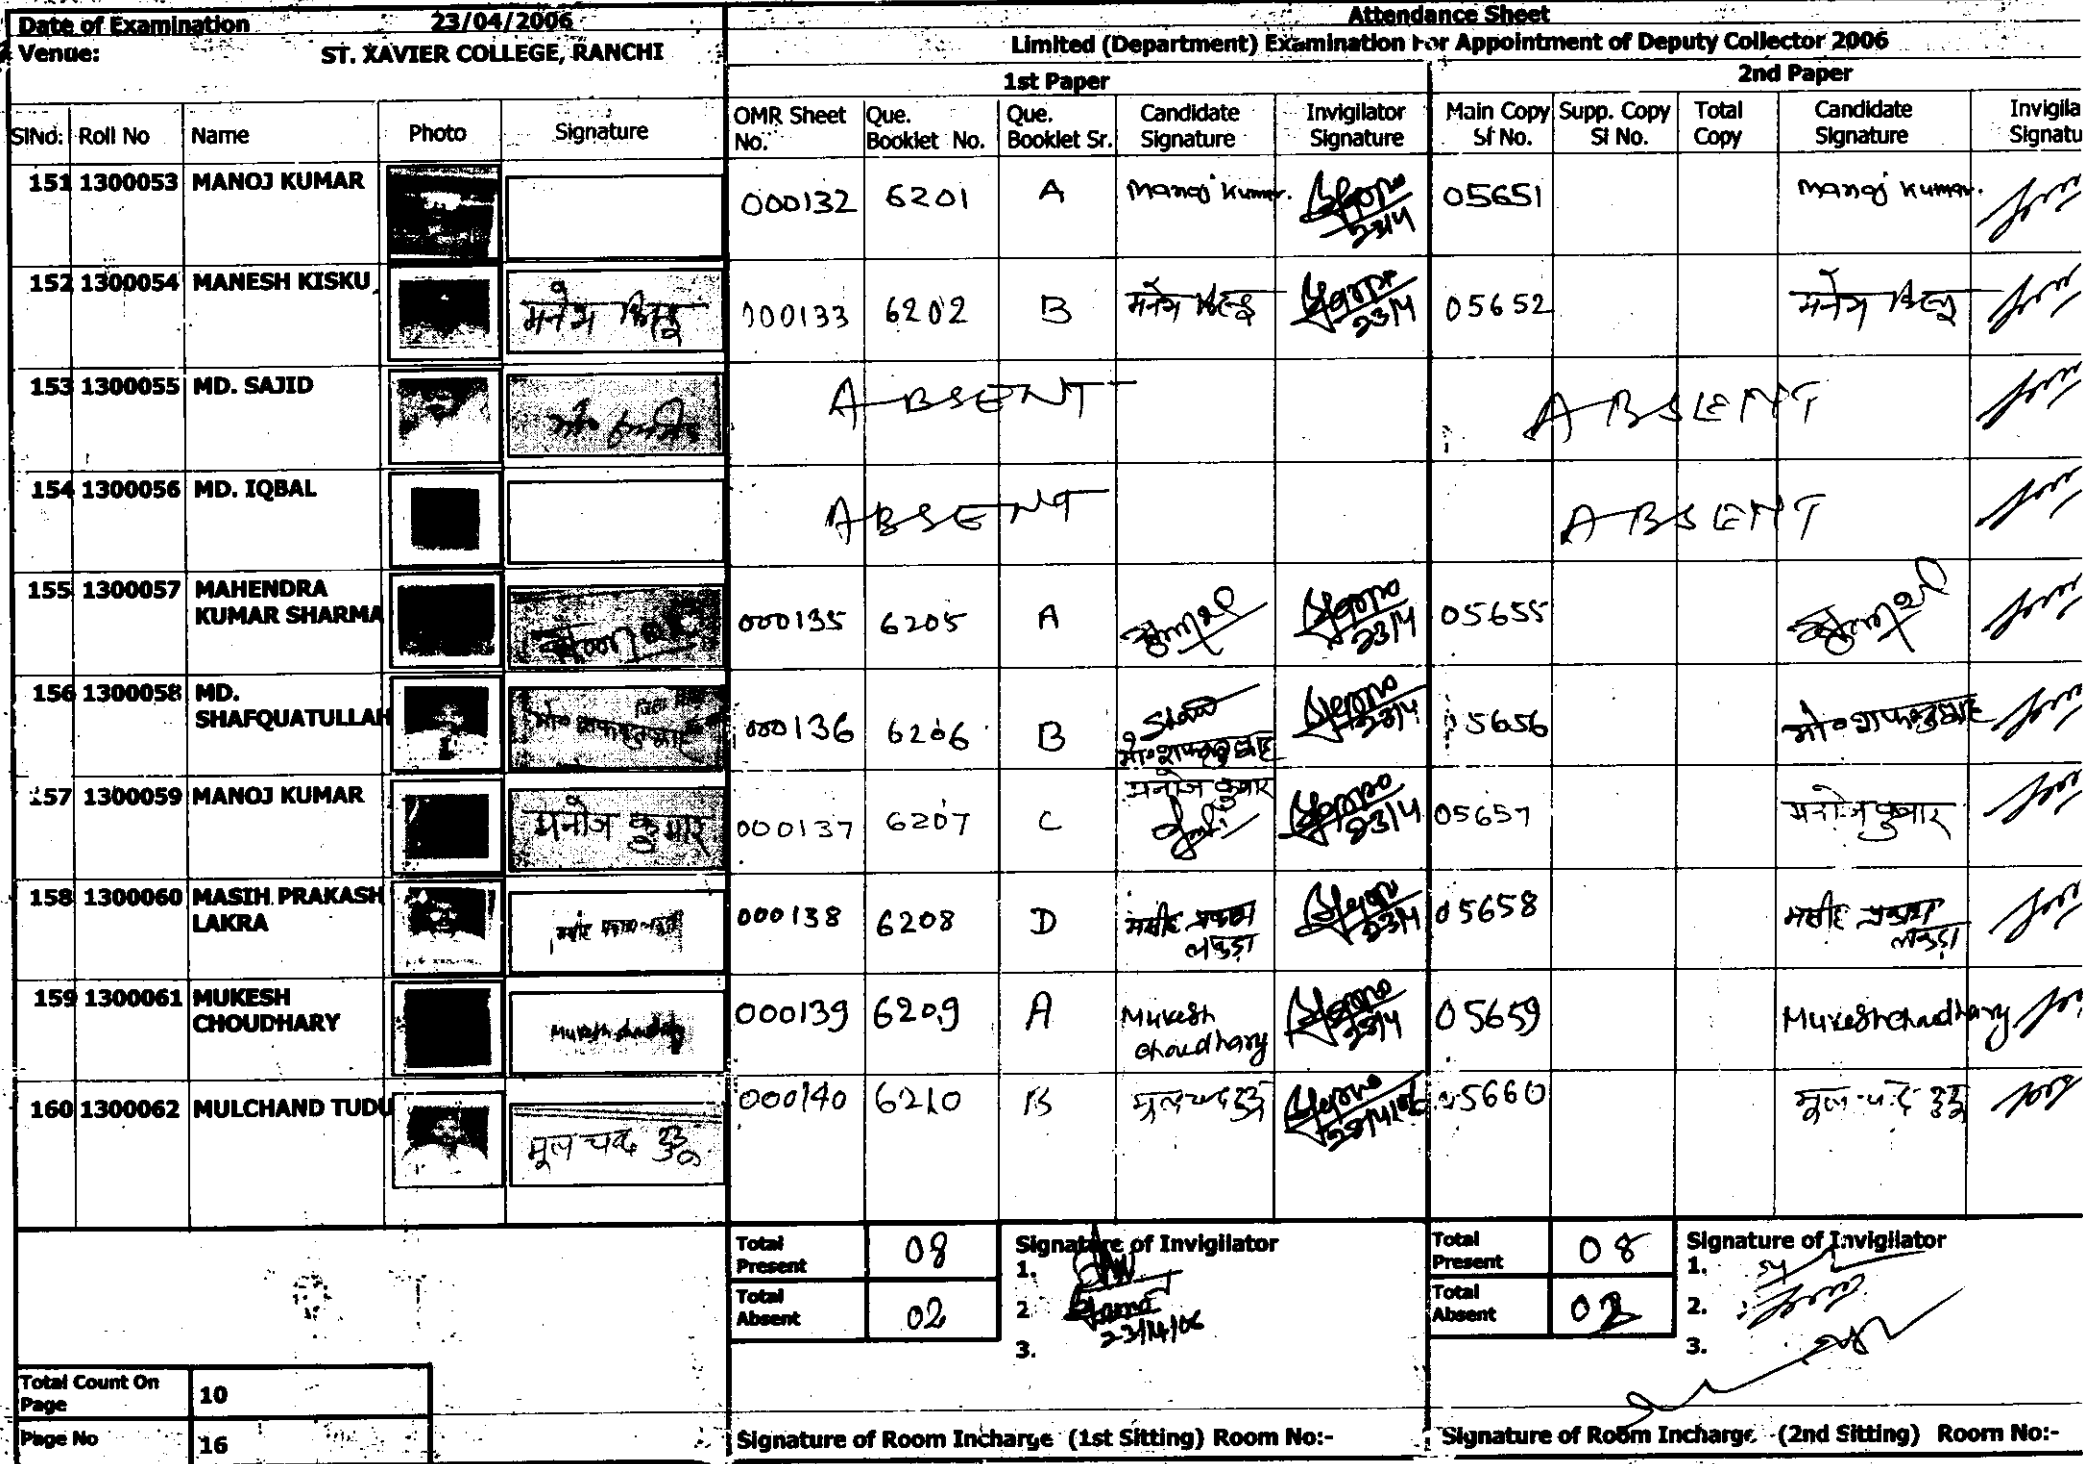 Date of Examination 23/04/2006 Attendance Sheet
Venue: ST. XAVIER COLLEGE, RANCHI Limited (Department) Examination For Appointment of Deputy Collector 2006
1st Paper 2nd Paper
SlNo. Roll No Name Photo Signature OMR Sheet No. Que. Booklet No. Que. Booklet Sr. Candidate Signature Invigilator Signature Main Copy Sl No. Supp. Copy Sl No. Total Copy Candidate Signature Invigila Signatu
151 1300053 MANOJ KUMAR 000132 6201 A Manoj Kumar. 23/4 05651 Manoj Kumar.
152 1300054 MANESH KISKU 000133 6202 B 23/4 05652
153 1300055 MD. SAJID ABSENT ABSENT
154 1300056 MD. IQBAL ABSENT ABSENT
155 1300057 MAHENDRA KUMAR SHARMA 000135 6205 A 23/4 05655
156 1300058 MD. SHAFQUATULLAH 000136 6206 B 23/4 05656
157 1300059 MANOJ KUMAR मनोज कुमार 000137 6207 C मनोज कुमार 23/4 05657 मनोज कुमार
158 1300060 MASIH PRAKASH LAKRA 000138 6208 D मसीह प्रकाश लकड़ा 23/4 05658 मसीह प्रकाश लकड़ा
159 1300061 MUKESH CHOUDHARY Mukesh choudhary 000139 6209 A Mukesh choudhary 23/4 05659 Mukesh choudhary
160 1300062 MULCHAND TUDU मूल चंद टुडू 000140 6210 B मूल चंद टुडू 23/4/06 05660 मूल चंद टुडू
Total Present 08 Signature of Invigilator Total Present 08 Signature of Invigilator
1. 1.
Total Absent 02 2. 23/4/06 Total Absent 02 2.
3. 3.
Total Count On Page 10
Page No 16 Signature of Room Incharge (1st Sitting) Room No:- Signature of Room Incharge (2nd Sitting) Room No:-